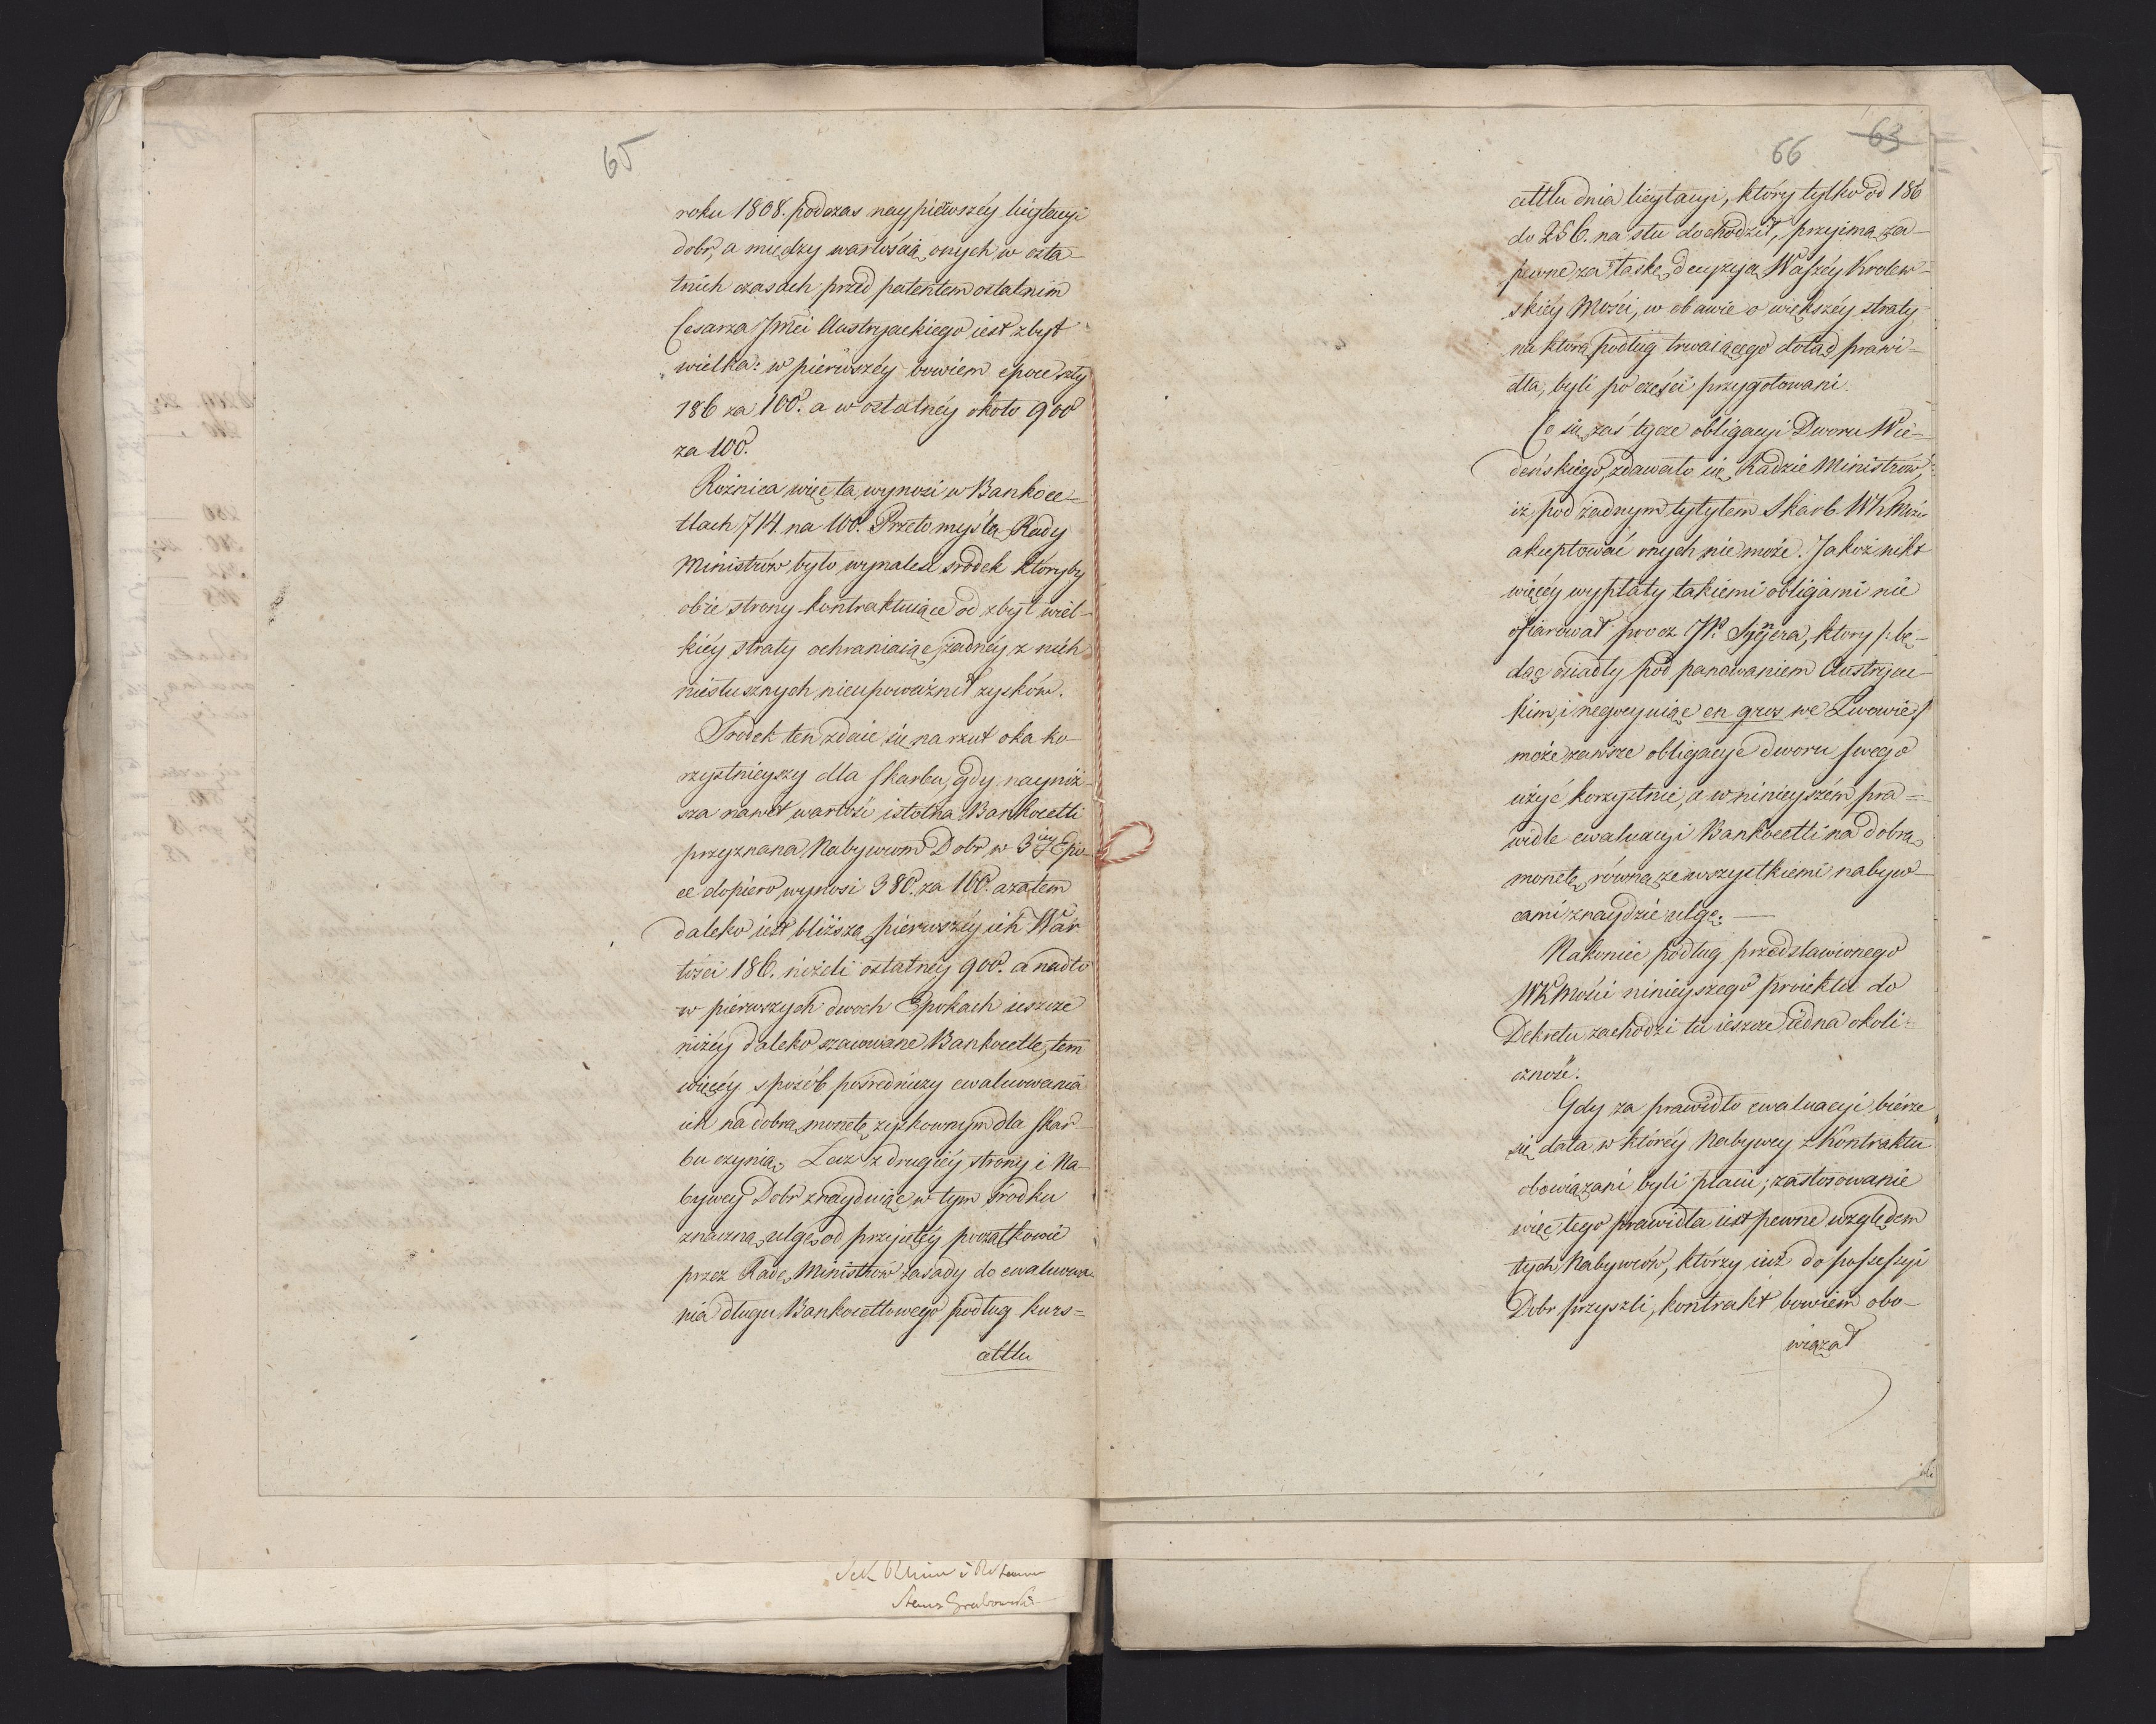 65
roku 1808. podczas naypierwszéy licytacyi
dobr, a między wartością onych w osta-
tnich czasach przed patentem ostatnim
Cesarza Jmci Austryackiego iest zbyt
wielka: w pierwszéy bowiem epoce szły
186 za 100. a w ostatnéy około 900
za 100.
Rożnica więc ta wynosi w Bankoce=
tlach 714 na 100. Przeto myślą Rady
Ministrów było wynaleść srodek któryby
obie strony kontraktuiące od zbyt wiel-
kiéy straty ochraniaiąc, żadnéy z nich
niesłusznych nieupoważnił zysków.
Srodek ten zdaie się na rzut oka ko-
rzystnieyszy dla skarbu, gdy nayniż-
sza nawet wartość istotna Bankocetli
przyznana Nabywcom Dobr w 3ciéy Epo-
ce dopiero wynosi 380. za 100. a zatem
daleko iest bliższą pierwszéy ich War
tości 186. niżeli ostatnéy 900. a nadto
w pierwszych dwoch Epokach ieszcze
niżéy daleko szacowane Bankocetle, tem
więcéy sposób pośredniczy ewaluowania
ich na dobrą monetę zyskownym dla skar-
bu czynią. Lecz z drugiéy strony i Na-
bywcy Dobr znayduiąc w tym środku
znaczną ulgę od przyiętéy początkowie
przez Radę Ministrów zasady do ewaluowa-
nia długu Bankocetlowego podług kurs=
cettlu
66 63
cettlu dnia licytacyi, który tylko od 186
do 256. na stu dochodził, przyimą za-
pewne za łaskę decyzyą Waszéy Krolew-
skiéy Mości, w obawie o większéy straty
na którą podług trwaiącego dotąd prawi=
dła, byli po części przygotowani.
Co się zaś tycze obligacyi Dworu Wie=
deńskiego, zdawało się Radzie Ministrów,
iż pod żadnym tytytem Skarb WKMości
akceptować onych nie może. Jakoż nikt
więcéy wypłaty takiemi obligami nie
ofiarował procz JP. , ktory /:bę-
dąc osiadły pod panowaniem Austryac-
kim, i negocyuiąc en gros we Lwowie:/
może zawsze obligacye dworu swego
użyć korzystnie, a w ninieyszém pra=
widle ewaluacyi Bankocetli na dobrą
monetę, równą ze wszystkiemi nabyw-
cami znaydzie ulgę. —
Nakoniec podług przedstawionego
WKMości ninieyszego proiektu do
Dekretu zachodzi tu ieszcze iedna okoli=
czność.
Gdy za prawidło ewaluacyi bierze
się data w któréy Nabywcy z Kontraktu
obowiązani byli płacić; zastosowanie
więc tego prawidła iest pewne względem
tych Nabywców, którzy iuż do possessyi
Dobr przyszli, kontrakt bowiem obo-
wiązał